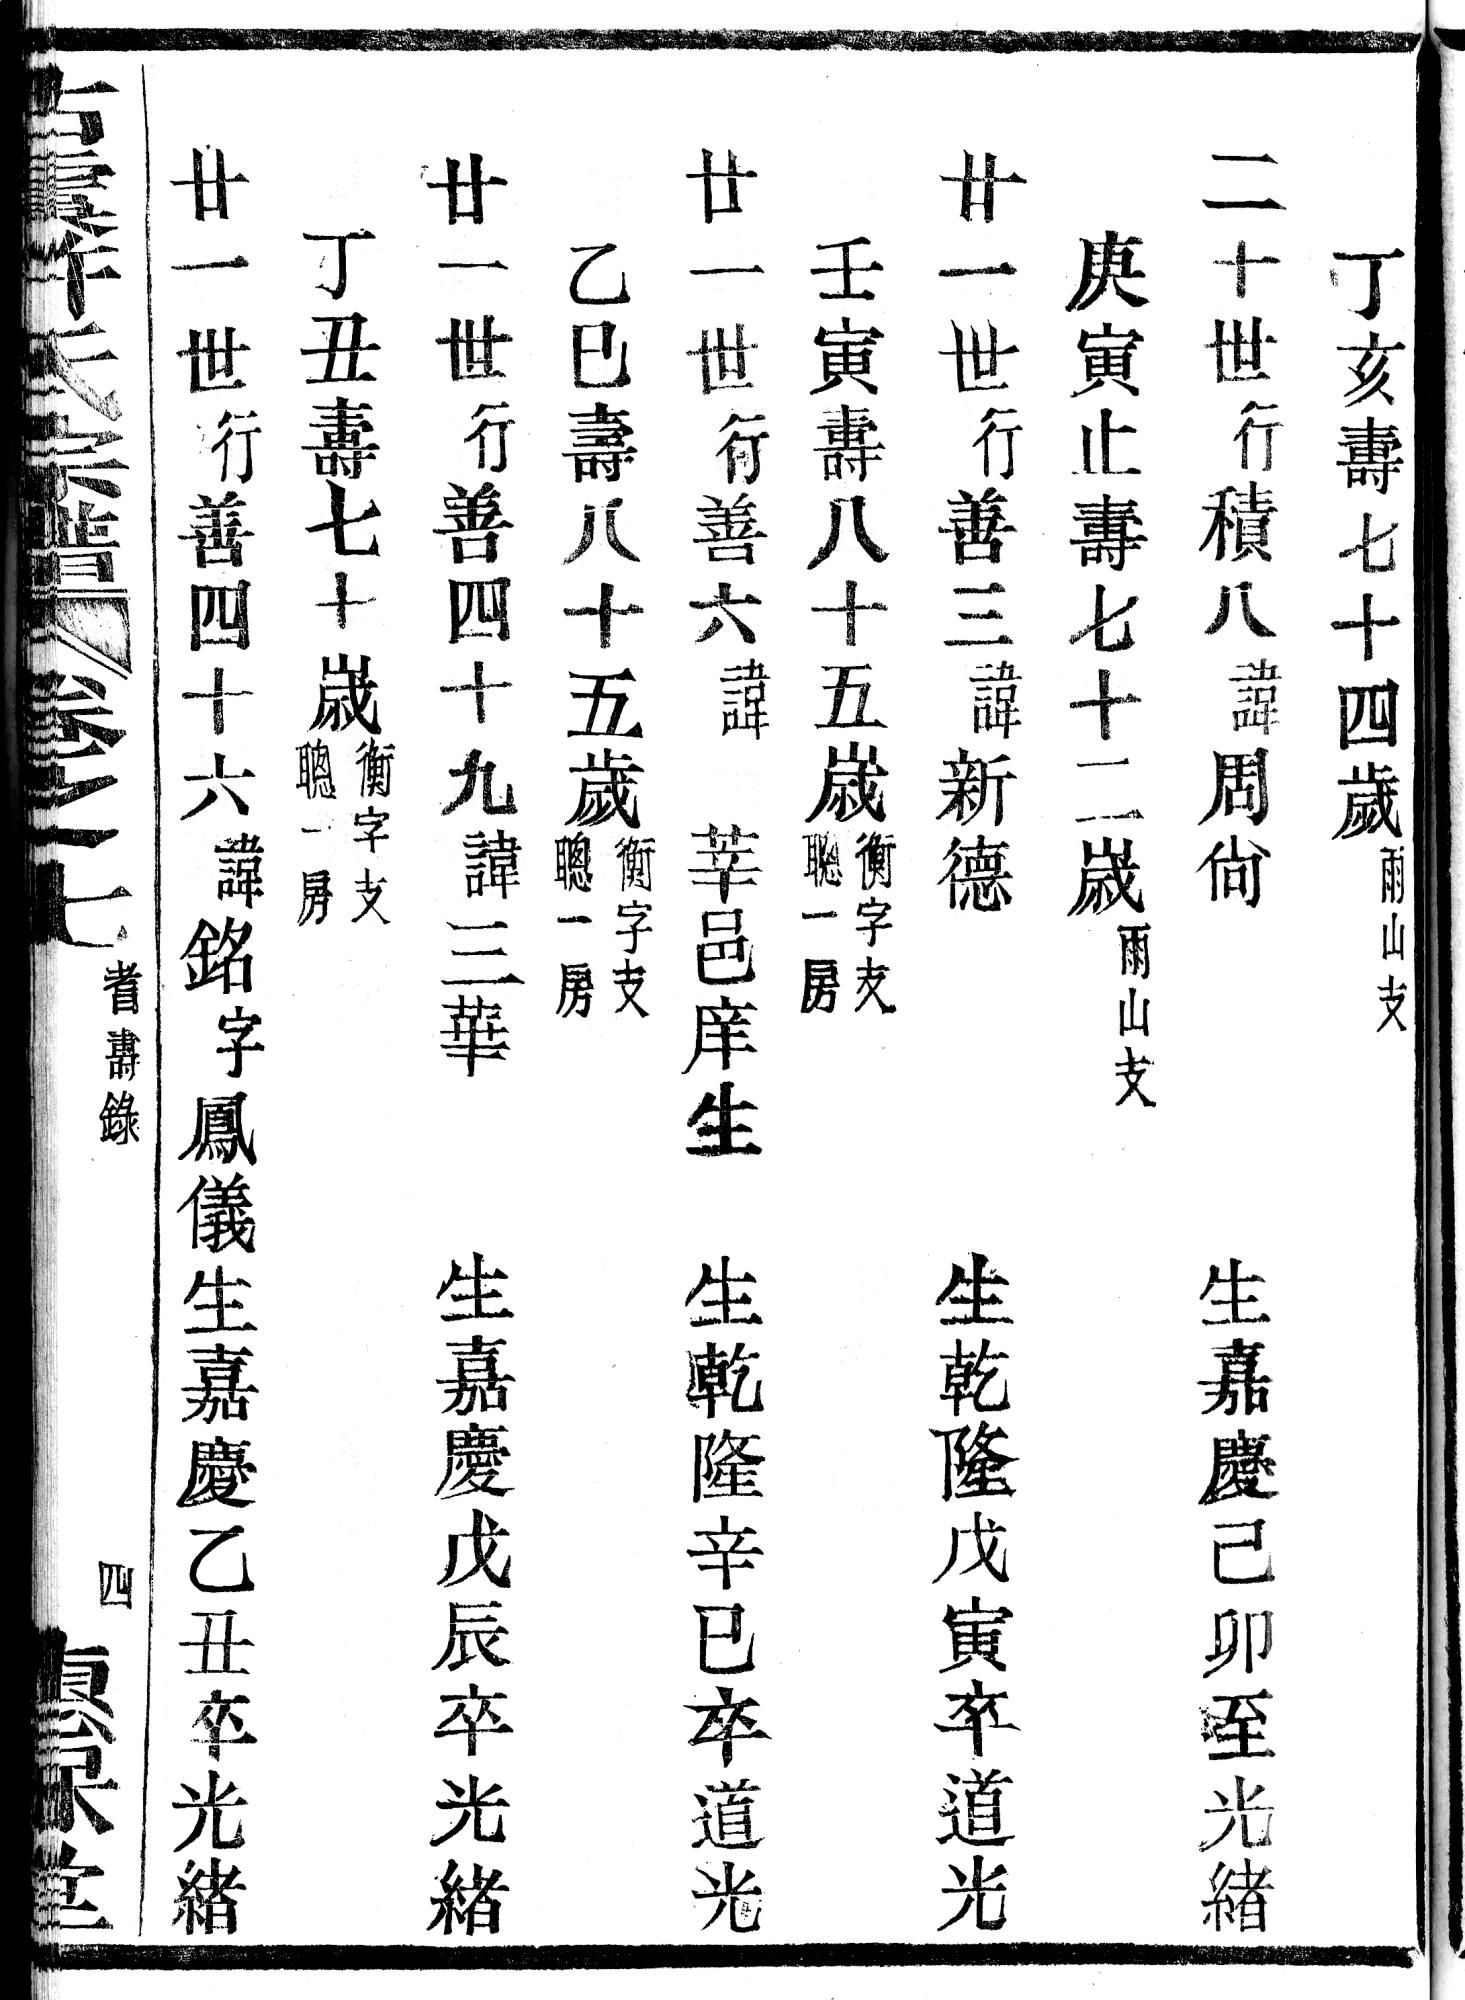 丁亥壽七十四歲雨山支
二十世行積八諱周尙　生嘉慶己卯至光緒
庚寅止壽七十二歲雨山支
廿一世行善三諱新德　生乾隆戊寅卒道光
壬寅壽八十五歲衡字支聰一房
廿一世行善六諱　莘邑庠生　生乾隆辛巳卒道光
乙巳壽八十五歲衡字支聰一房
廿一世行善四十九諱三華　生嘉慶戊辰卒光緒
丁丑壽七十歲衡字支聰一房
廿一世行善四十六諱銘字鳳儀生嘉慶乙丑卒光緒
氏宗譜　卷之十七　耆壽錄　四　堂